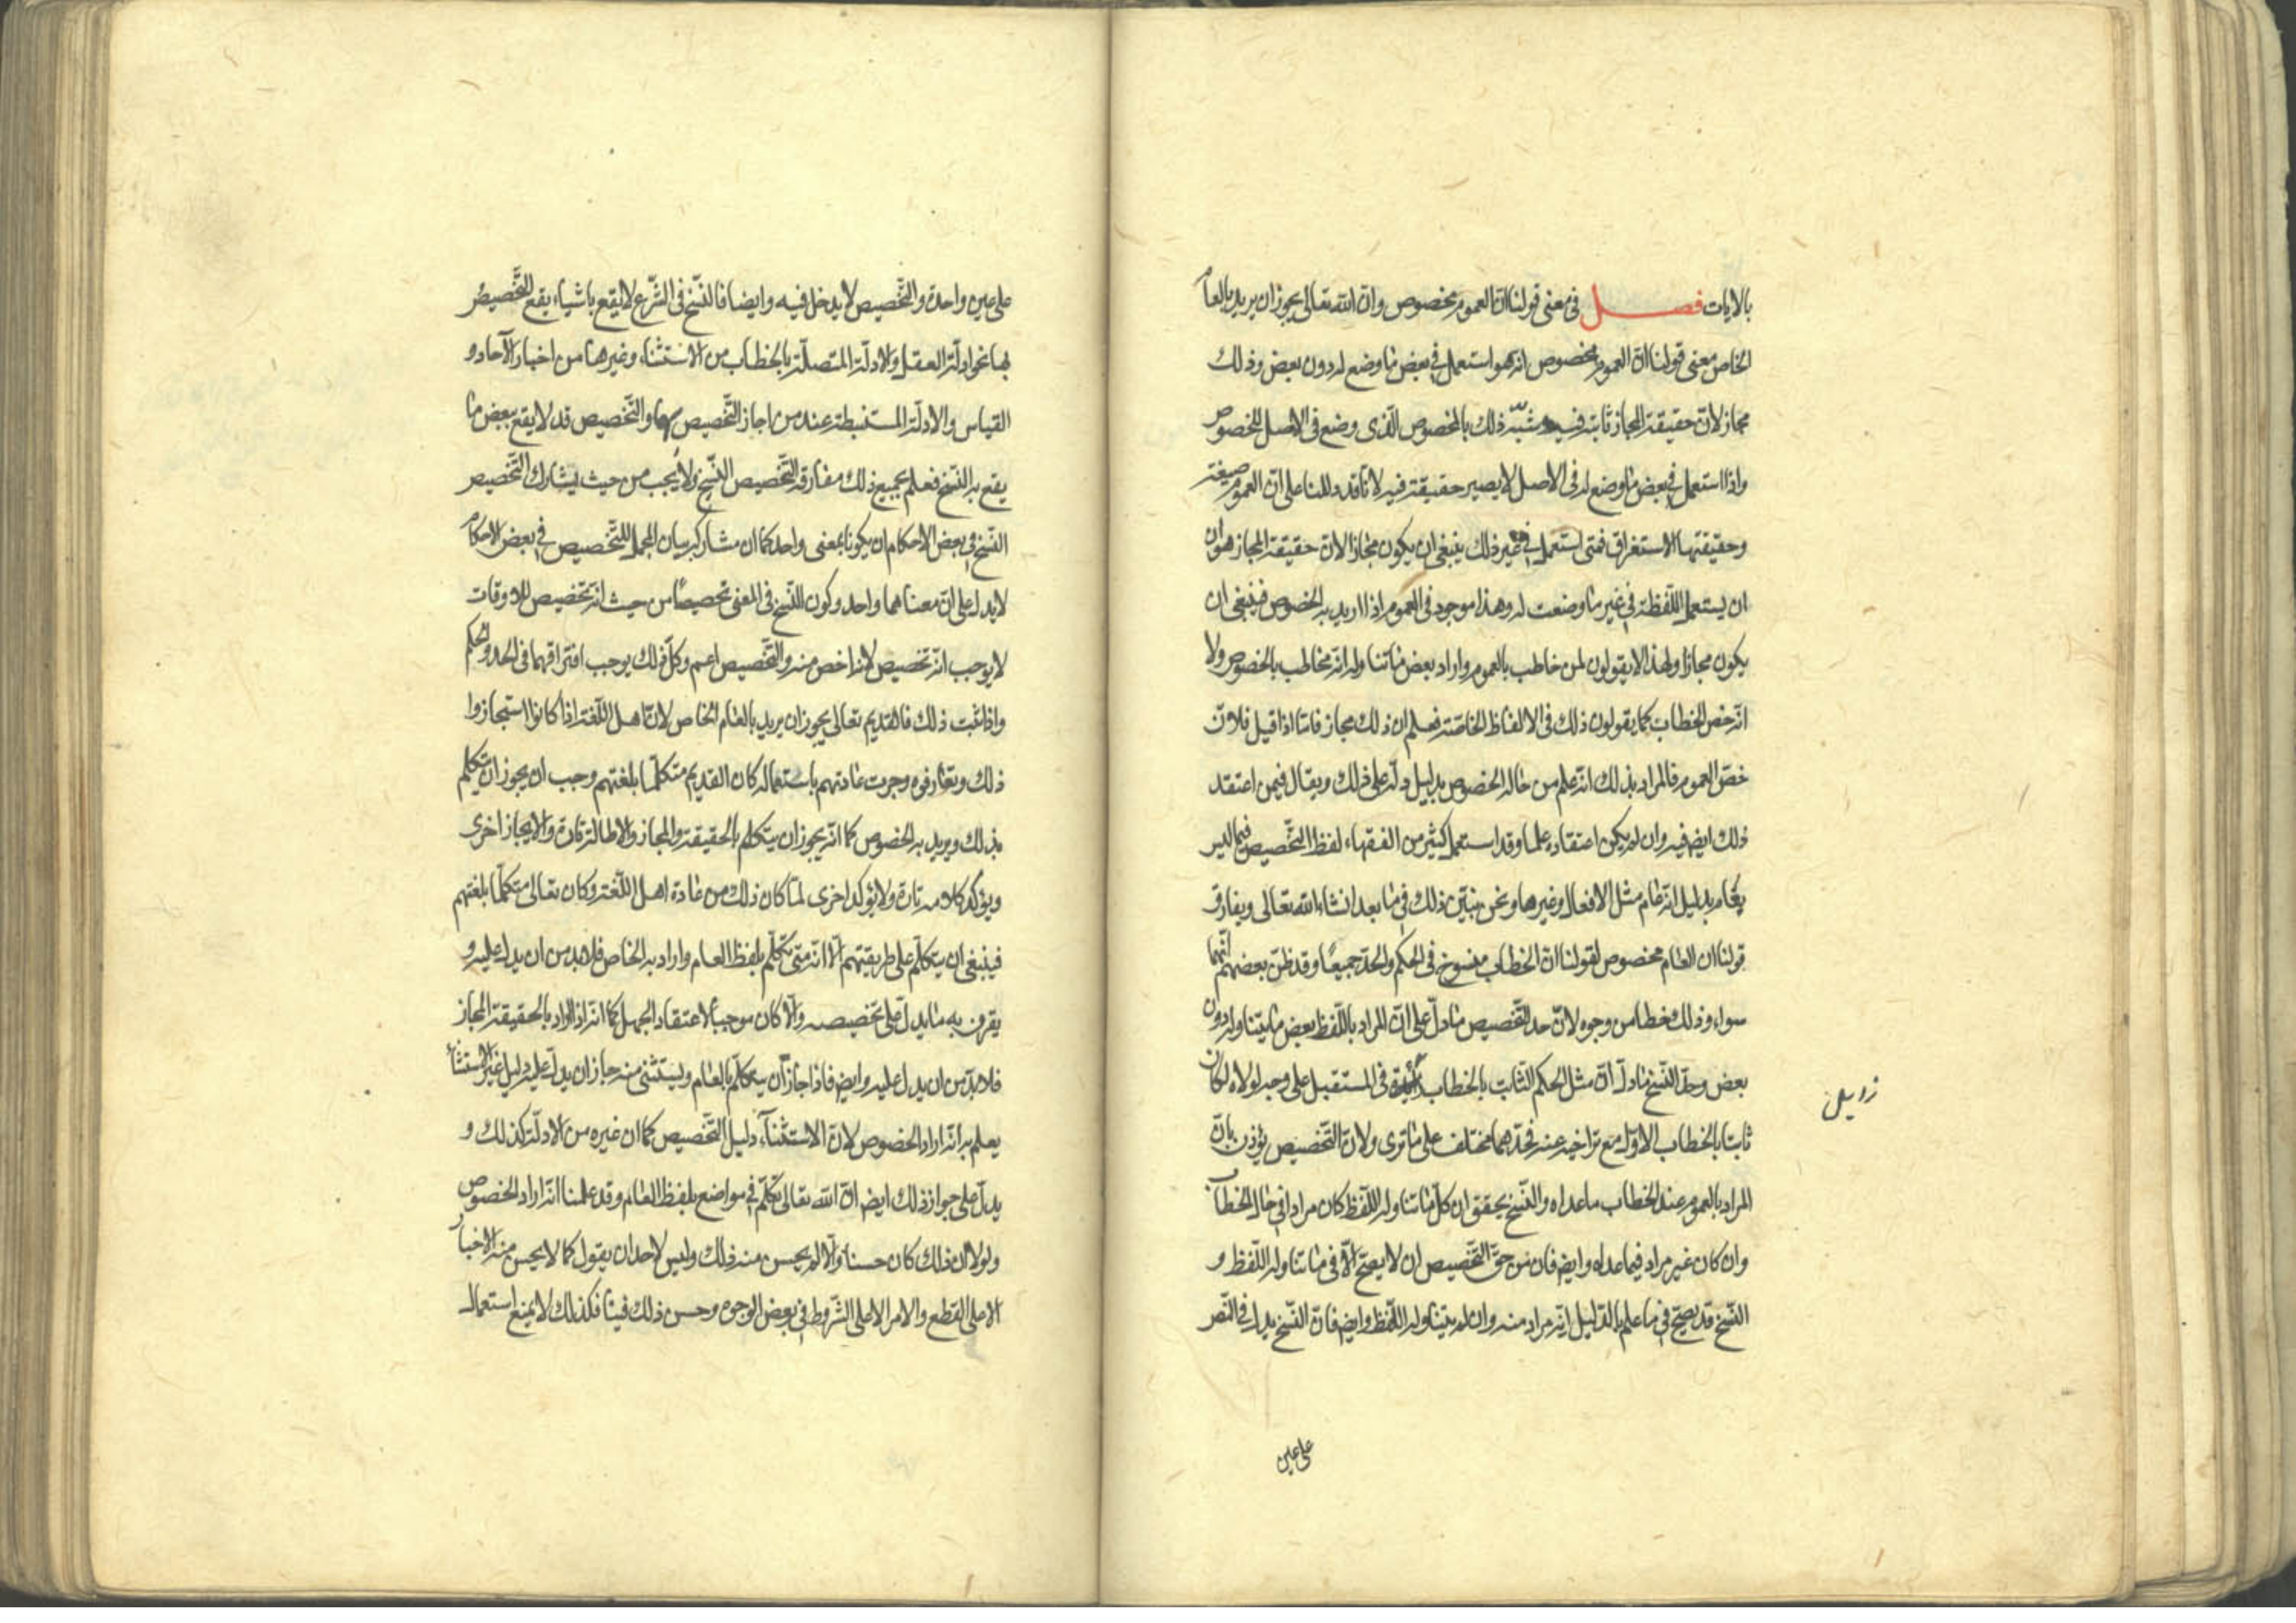 بالايات فصل في معنى قولنا انّ العموم مخصوص وانّ الله تعالى يجوز ان يريد بالعام
الخاص معنى قولنا انّ العموم مخصوص انه هو استعمل في بعض ما وضع له دون بعض وذلك
مجاز لانّ حقيقة المجاز ثابتة فيه وشبّه ذلك بالمخصوص الّذى وضع في الاصل للخصوص
واذا استعمل في بعض ما وضع له في الاصل لا يصير حقيقة فيه لانّا قد دللنا على انّ العموم صيغته
وحقيقتها الاستغراق فمتى استعمل في غير ذلك ينبغي ان يكون مجازا لانّ حقيقة المجاز هو ان
ان يستعمل اللّفظة في غير ما وضعت له وهذا موجود في العموم اذا اريد به الخصوص فينبغي ان
يكون مجازا ولهذا لا يقولون لمن خاطب بالعموم واراد بعض ما تناوله انّه مخاطب بالخصوص ولا
انّه خصّ الخطاب كما يقولون ذلك في الالفاظ الخاصّة فعلم ان ذلك مجاز فامّا اذا قيل فلانّ
خصّ العموم فالمراد بذلك انّه علم من حاله الخصوص بدليل دلّه على ذلك ويقال فيمن اعتقد
ذلك ايضا فيه وان لم يكن اعتقاده علما وقد استعمل كثير من الفقهاء لفظ التّخصيص فيما ليس
بعام بدليل انّه عام مثل الافعال وغيرها ونحن نبيّن ذلك في ما بعد انشاء الله تعالى ويفارق
قولنا ان العام مخصوص لقولنا انّ الخطاب منسوخ في الحكم والحدّ جميعًا وقد ظنّ بعضهم انّهما
سواء وذلك خطا من وجوه لانّ حد التّخصيص ما دلّ على انّ المراد باللّفظ بعض ما يتناوله دون
بعض وحدّ النّسخ ما دلّ انّ مثل الحكم الثّابت بالخطاب في المستقبل على وجه لولاه لكان
ثابتا بالخطاب الاوّل مع تراخيه عنه فحدّهما مختلف على ما ترى ولانّ التّخصيص يؤذن بانّ
المراد بالعموم عند الخطاب ما عداه والنّسخ يحقق ان كلّ ما تناوله اللّفظ كان مرادا في حال الخطاب
وان كان غير مراد فيما عداه وايضا فان من حقّ التّخصيص ان لا يصحّ الّا في ما تناوله اللّفظ و
النّسخ قد يصحّ في ما علم بالدّليل انّه مراد منه وان لم يتناوله اللّفظ وايضا فانّ النّسخ يدخل في النّص
على عين
على عين واحدة والتّخصيص لا يدخل فيه وايضا فالنّسخ في الشّرع لا يقع باشياء يقع التّخصيص
بها نحو ادلّة العقل والادلّة المتّصلة بالخطاب من الاستثناء وغيرها من اخبار الآحاد و
القياس والادلّة المستنبطة عند من اجاز التّخصيص بها والتّخصيص قد لا يقع ببعض ما
يقع به النّسخ فعلم بجميع ذلك مفارقة التّخصيص النّسخ ولا يجب من حيث يشارك التّخصيص
النّسخ في بعض الاحكام ان يكونا بمعنى واحد كما ان مشاركة بيان المجمل للتّخصيص في بعض الاحكام
لا يدل على انّ معناهما واحد وكون النّسخ في المعنى تخصيصًا من حيث انّه تخصيص للاوقات
لا يوجب انّه تخصيص لانّه اخص منه والتّخصيص اعم وكل ذلك يوجب افتراقهما في الحد والحكم
واذا ثبت ذلك فالقديم تعالى يجوز ان يريد بالعام الخاص لانّ اهل اللّغة اذا كانوا استجازوا
ذلك وتعارفوه وجرت عادتهم باستعماله كان القديم متكلّما بلغتهم وجب ان يجوز ان يتكلّم
بذلك ويريد به الخصوص كما انّه يجوز ان يتكلم بالحقيقة والمجاز والاطالة تارة والايجاز اخرى
ويؤكّد كلامه تارة ولا يؤكد اخرى لما كان ذلك من عادة اهل اللّغة وكان تعالى متكلّما بلغتهم
فينبغي ان يتكلّم على طريقتهم الّا انّه متى تكلّم بلفظ العام واراد به الخاص فلابد من ان يدل عليه و
يقرن به ما يدل على تخصيصه والّا كان موجبا لاعتقاد الجهل كما انّه اذا اراد بالحقيقة المجاز
فلابدّ من ان يدل عليه وايضا فاذا جاز ان يتكلّم بالعام ويستثنى منه جاز ان يدلّ عليه دليل غير الاستثناء
يعلم به انّه اراد الخصوص لانّ الاستثناء دليل التّخصيص كما ان غيره من الادلّة كذلك و
يدلّ على جواز ذلك ايضا انّ الله تعالى تكلّم في مواضع بلفظ العام وقد علمنا انّه اراد الخصوص
ولولا انّ ذلك كان حسنا والّا لم يحسن منه ذلك وليس لاحد ان يقول كما لا يحسن منه الاخبار
الا على القطع والامر الا على الشّروط في بعض الوجوه وحسن ذلك فينا فكذلك لا يمنع استعمال